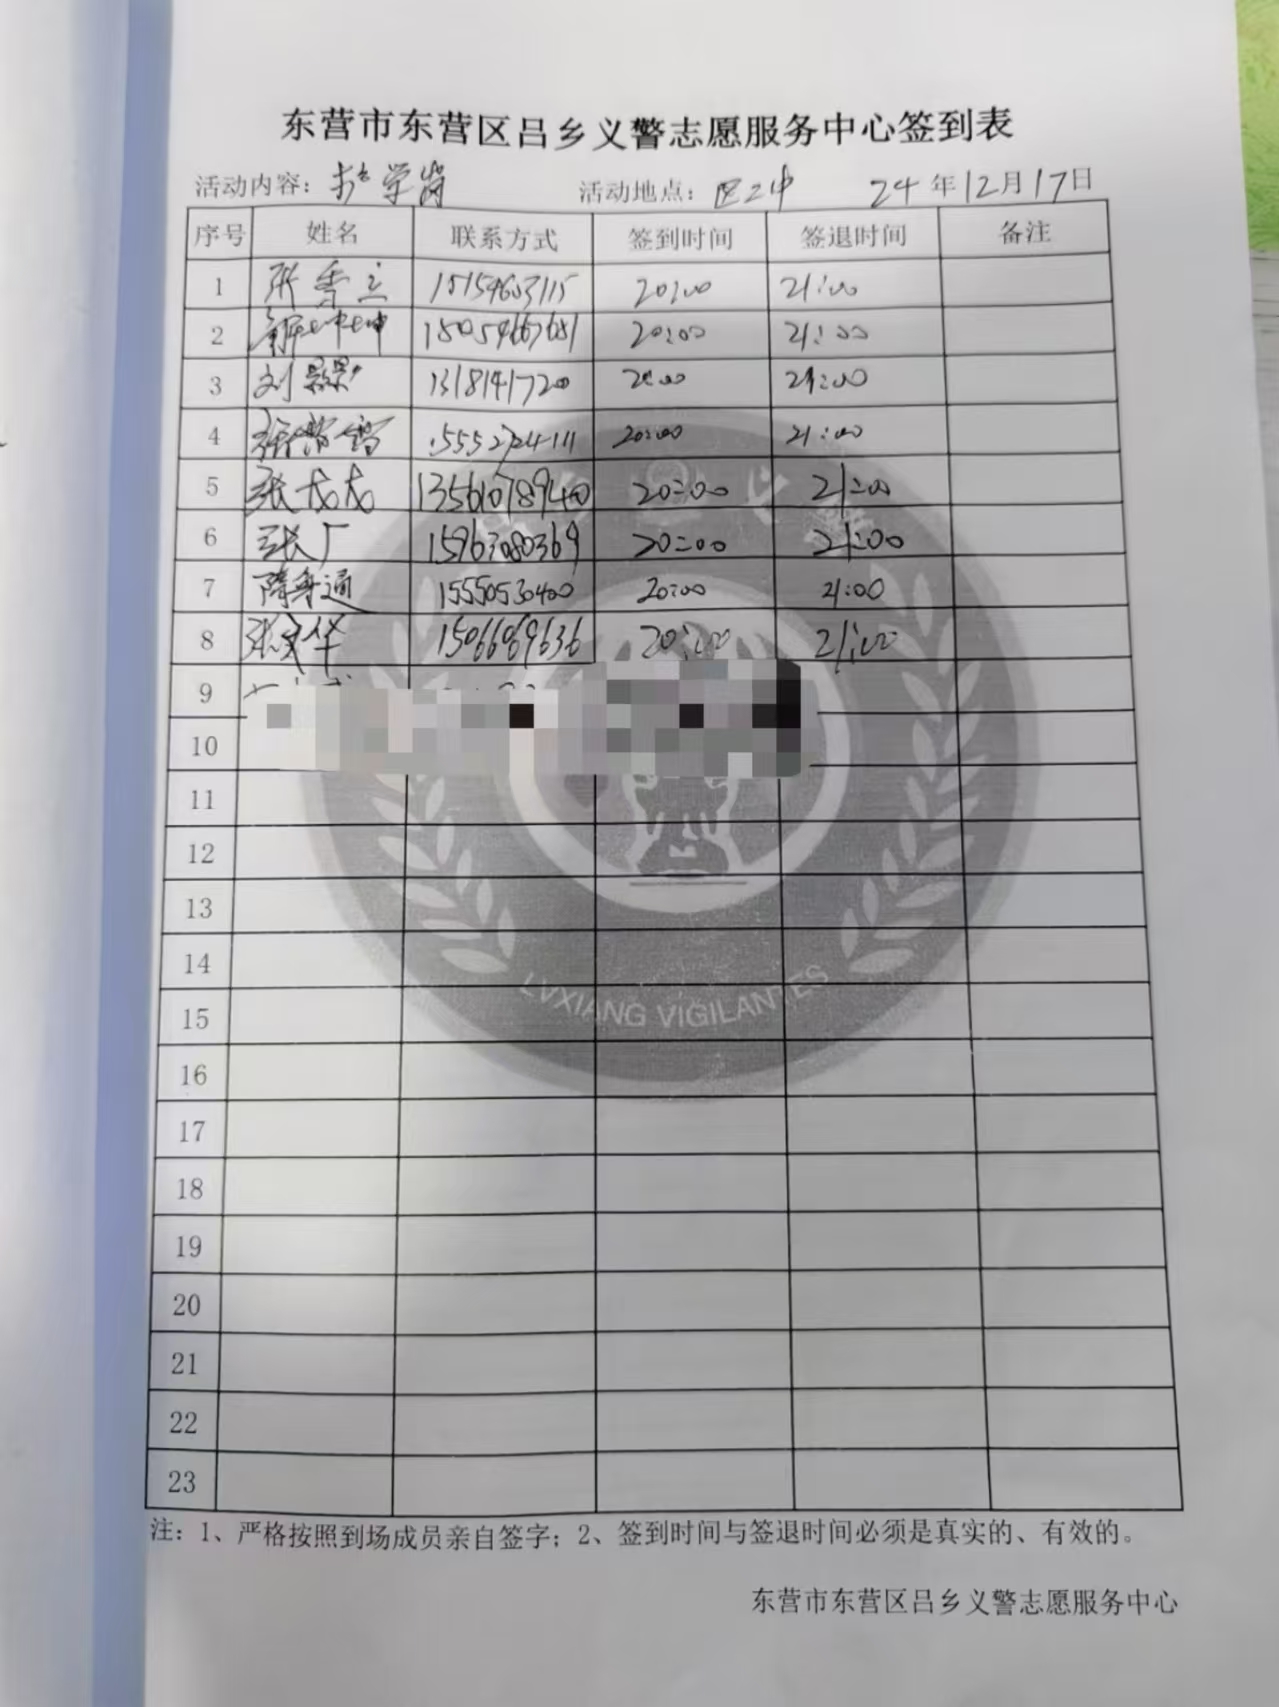 东营市东营区吕乡义警志愿服务中心签到表
活动内容：护学岗 活动地点：区二中 24年12月17日
序号 姓名 联系方式 签到时间 签退时间 备注
1 张秀兰 15154603115 20:00 21:00
2 15054667681 20:00 21:00
3 刘 1318141720 20:00 21:00
4 张 15552724111 20:00 21:00
5 张茂茂 13561078940 20:00 21:00
6 张广 15963080369 20:00 21:00
7 隋 通 15550530400 20:00 21:00
8 张文华 15066069636 20:00 21:00
9
10
11
12
13
14
15
16
17
18
19
20
21
22
23
LVXIANG VIGILANTES
注：1、严格按照到场成员亲自签字；2、签到时间与签退时间必须是真实的、有效的。
东营市东营区吕乡义警志愿服务中心